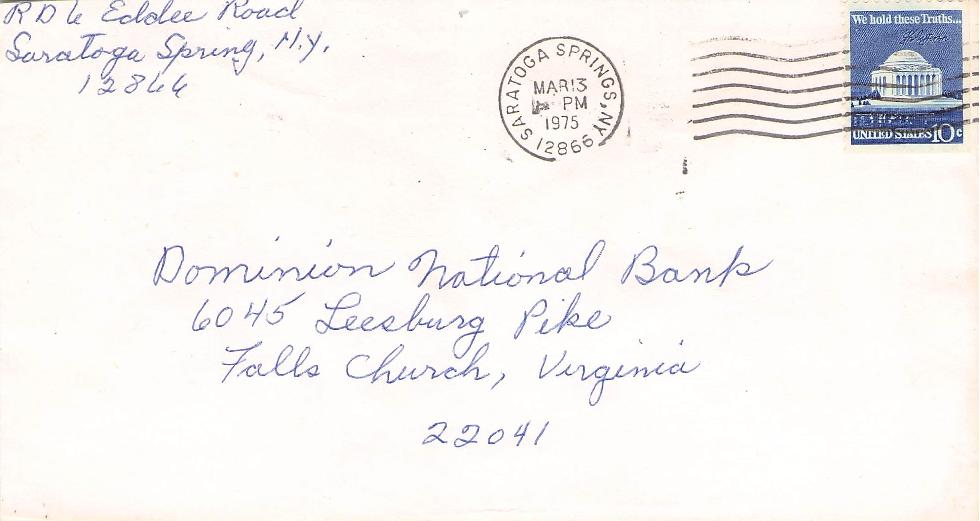 RD 6 Eddee Road
Saratoga Spring, N.Y.
12866
SARATOGA SPRINGS, NY
MAR 13
PM
1975
12866
We hold these Truths...
UNITED STATES 10c
Dominion National Bank
6045 Leesburg Pike
Falls Church, Virginia
22041